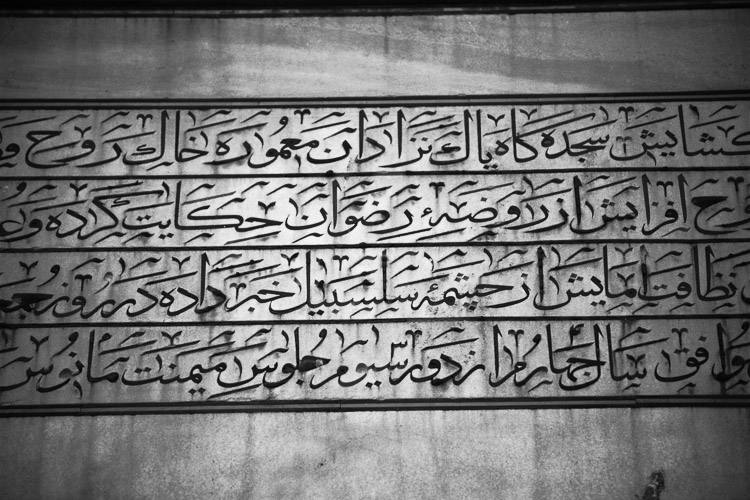 کشایش سجده کاه پاک نزادان معموره خاک روح
افزایش از روضهٔ رضوان حکایت کرده
نظافت امایش از چشمهٔ سلسبیل خبر داده در روز
سال چهارم از دور سیوم جلوس میمنت مانوس